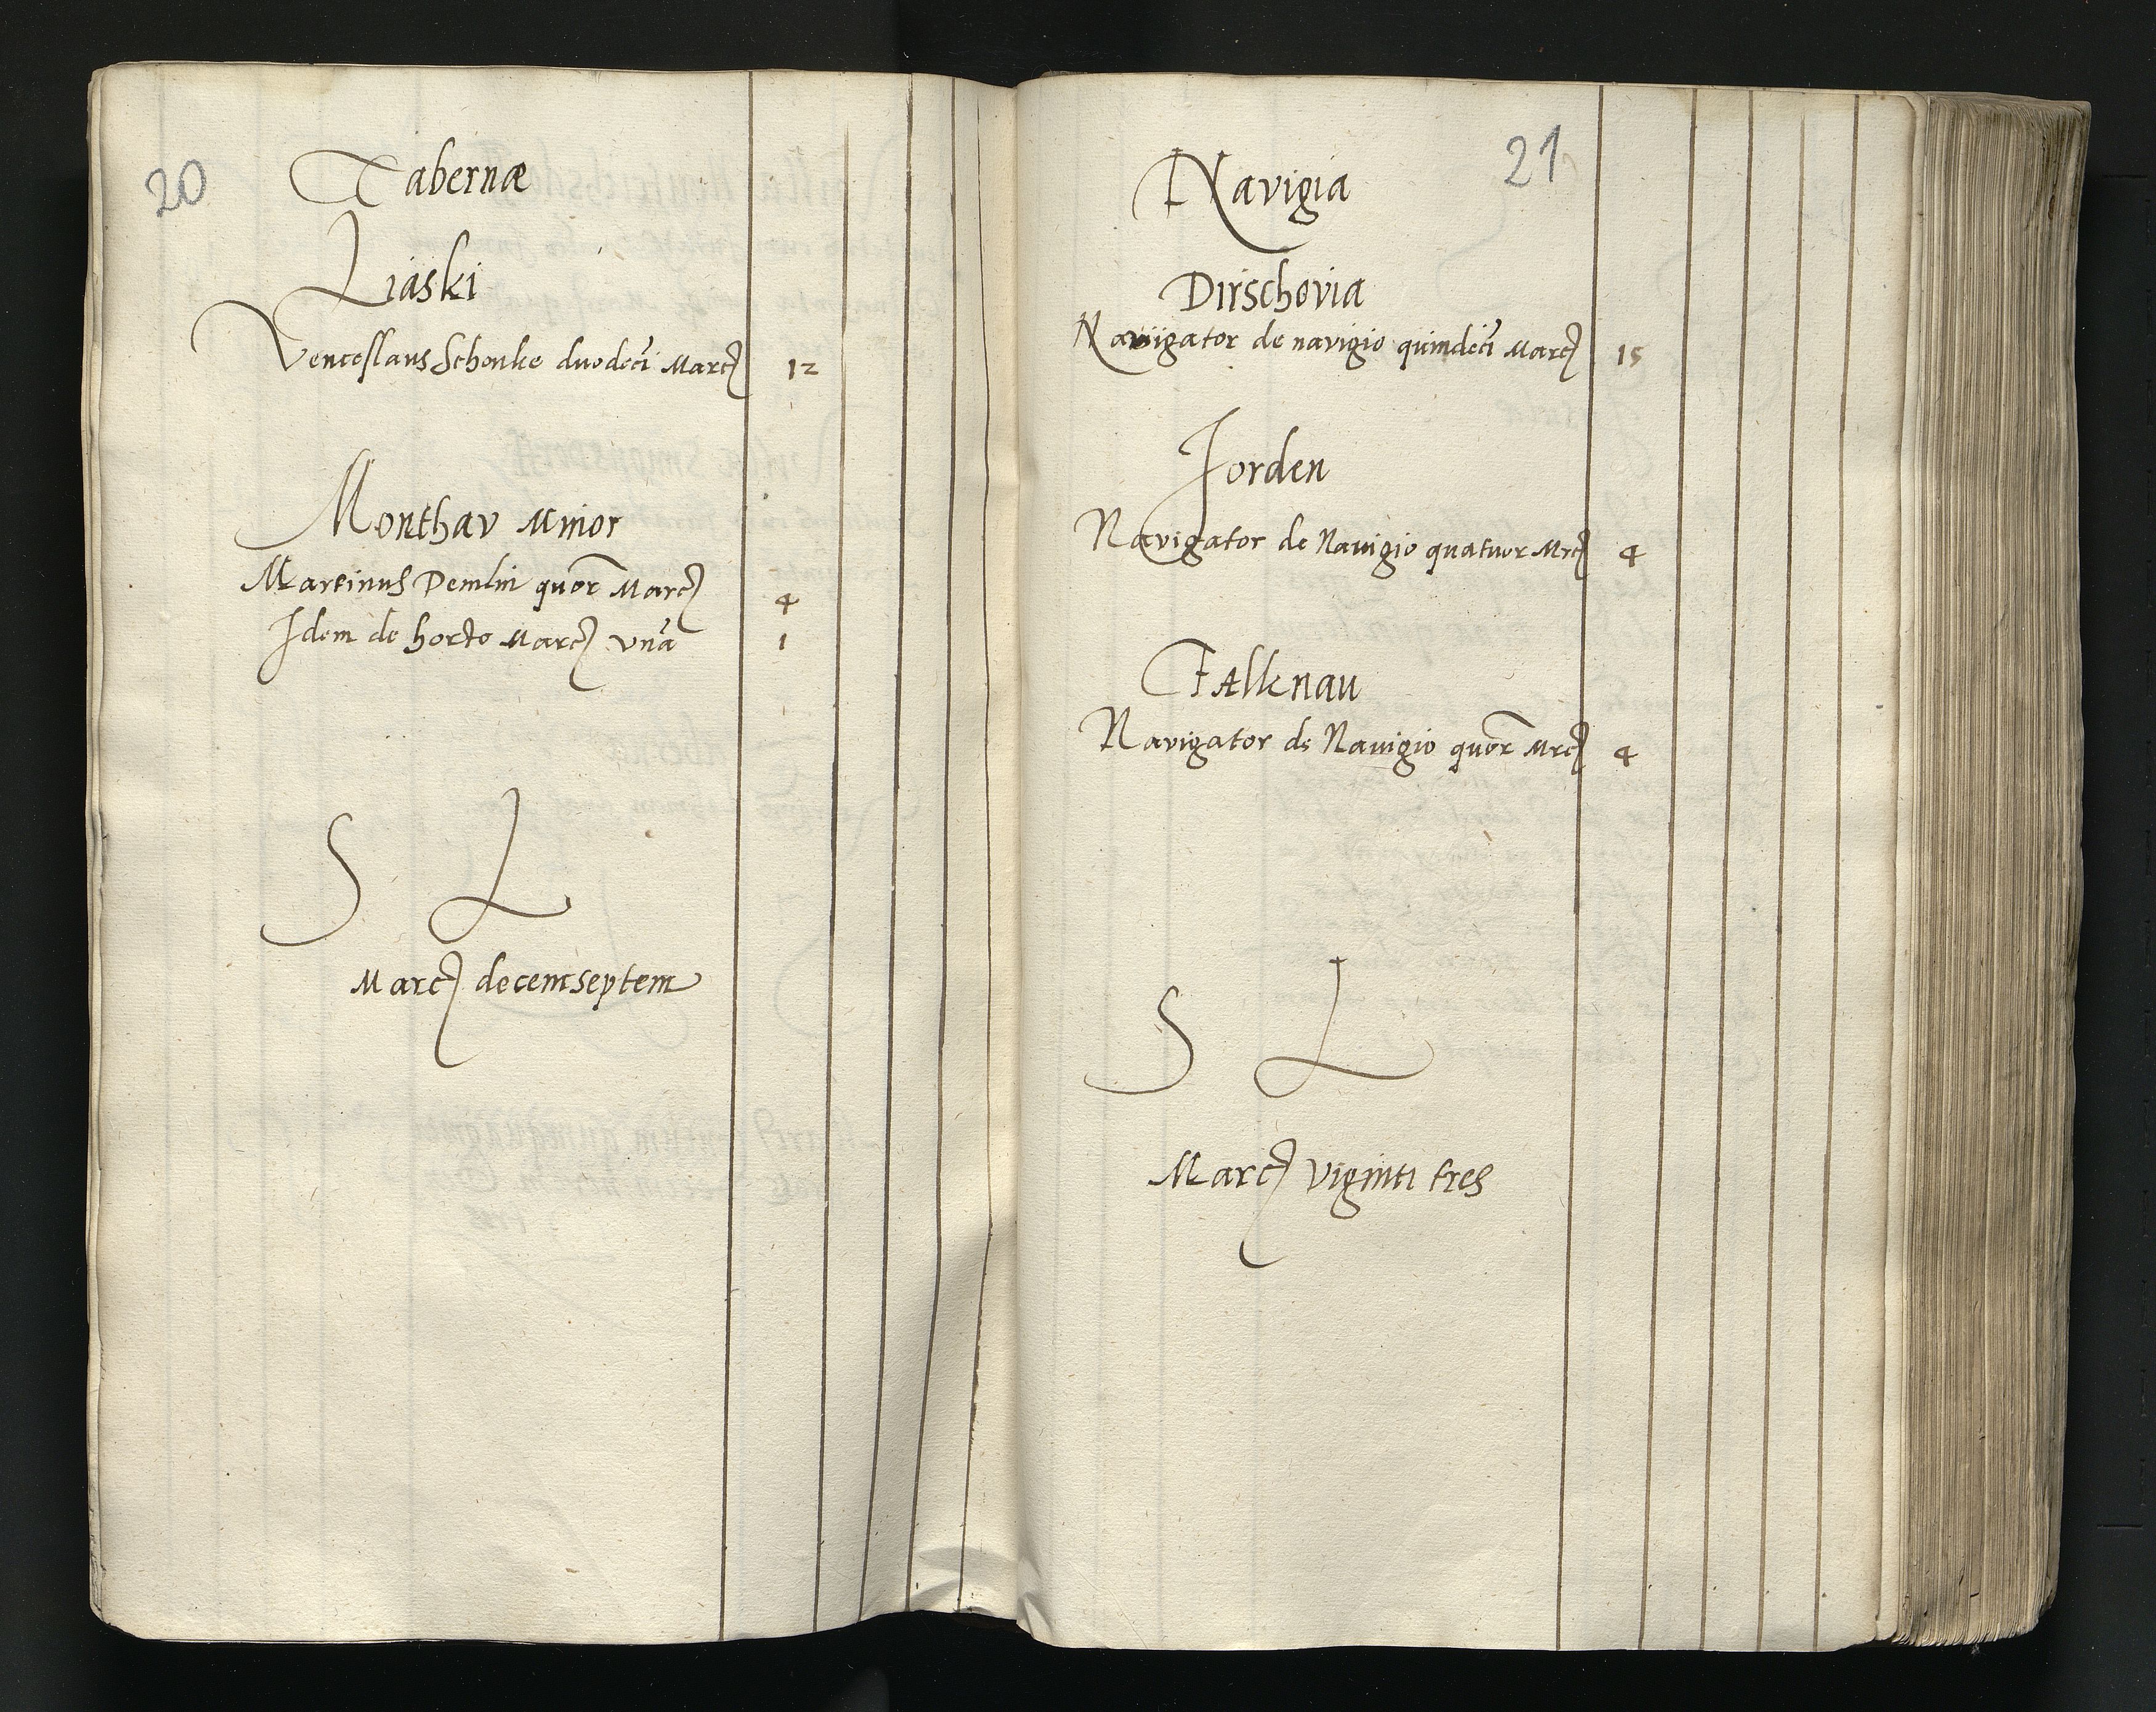 20
Tabernæ
Liaski
Venceslaus Schonke duodecī Marcȝ 12
Monthav Minor
Martinus Demlin quor̄ Marcȝ 4
Idem de horto Marcȝ vnā 1
S L
Marcȝ decemseptem
21
Navigia
Dirschovia
Naviigator de navigio quindecī Marcȝ 15
Jorden
Navigator de Nauigio quatuor Mrcȝ 4
Falkenau
Navigator de Nauigio quor̄ Mrcȝ 4
S L
Marcȝ viginti tres